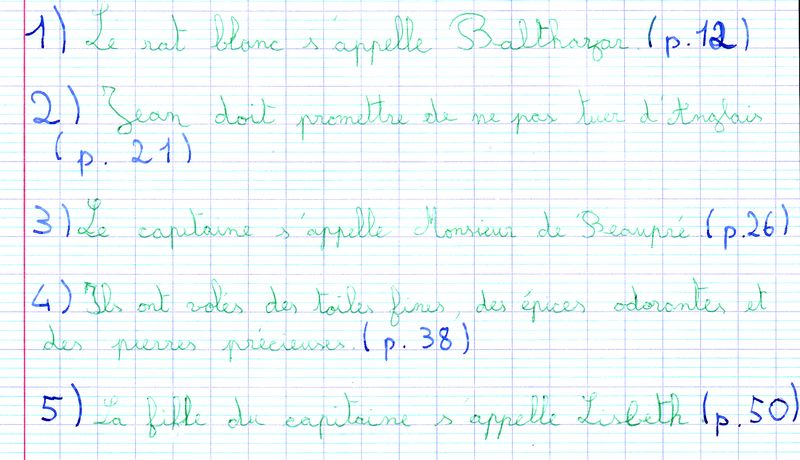 1) Le rat blanc s'appelle Balthazar. (p.12)
2) Jean doit promettre de ne pas tuer d'Anglais
(p. 21)
3) Le capitaine s'appelle Monsieur de Beaupré. (p.26)
4) Ils ont volés des toiles fines, des épices odorantes et
des pierres précieuses. (p. 38)
5) La fille du capitaine s'appelle Lisbeth (p.50)